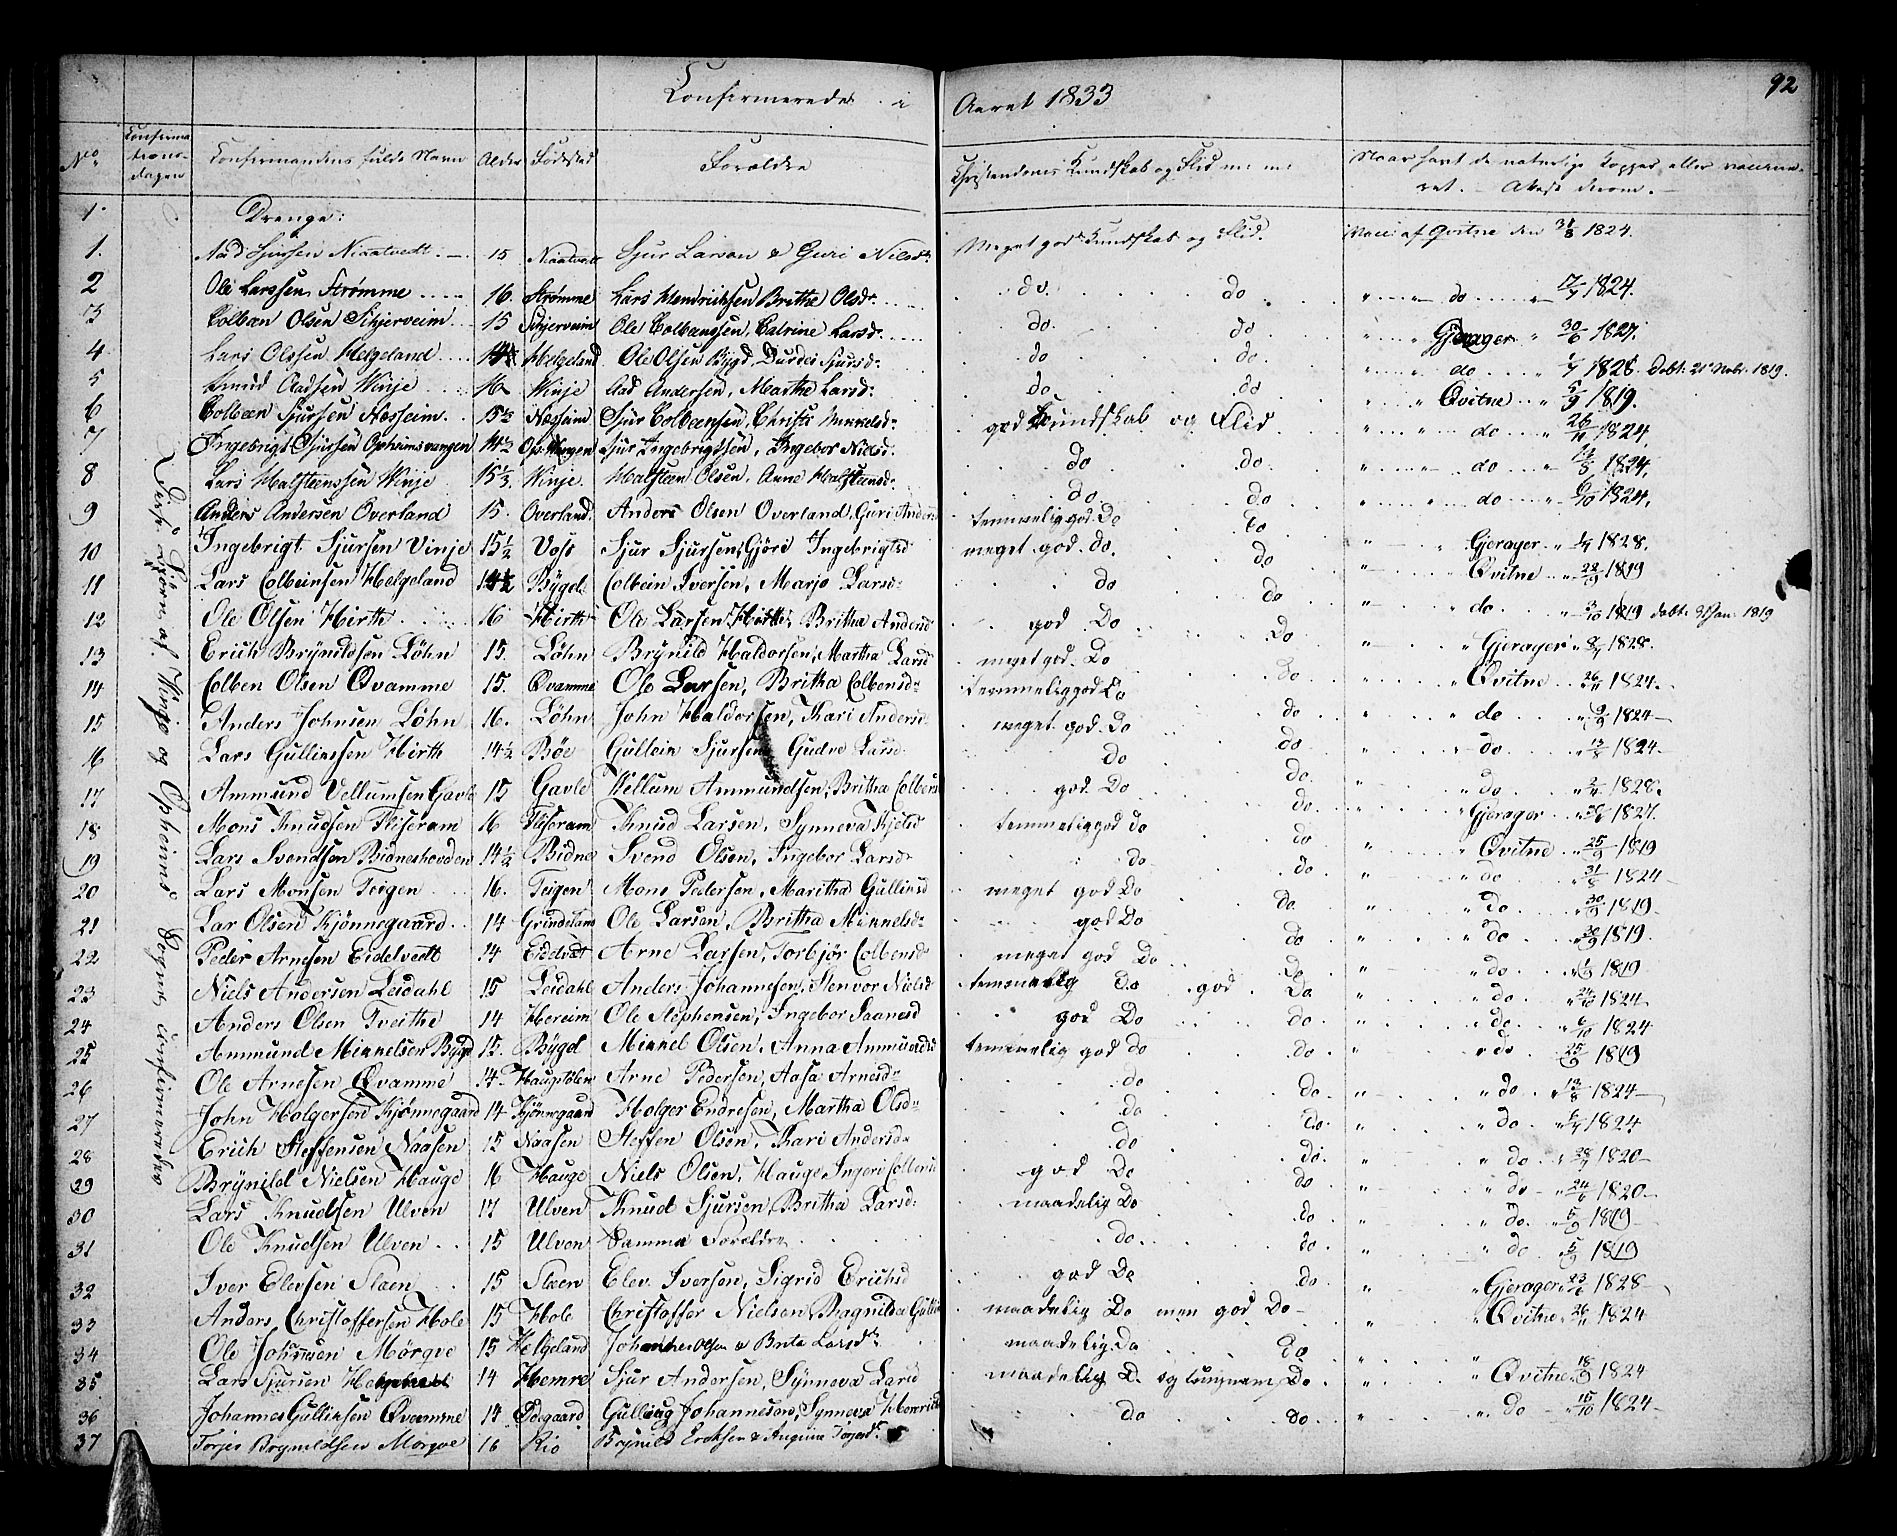 Confirmerede i Aaret 1833
92
No Confirmationsdagen Confirmandens fulde Navn Alder Fødested Forældre Christendoms Kundskab og Flid m: m: Naar havt de naturlige Kopper eller vaccineret. Attest derom.
1. Drenge:
1. Aad Sjursen Niaatvedt 15 Niaatvedt Sjur Larsen & Guri Nilsdr Meget god Kundskab og Flid. Vacc: af Qvitne den 31/8 1824.
2 Ole Larssen Strømme 16. Strømme Lars Hendrichsen Brithe Olsdr do. do " do " 17/7 1824.
3 Colben Olsen Skjerveim 15 Skjerveim Ole Colbensen, Catrine Larsdr do. do " Gjerager " 30/6 1827.
4 Lars Olssen Helgeland 14 Helgeland Ole Olsen Bygd, Durdei Sjursdr do do. " do " 1/7 1828 Døbt: 21 Nobr. 1819.
5 Knud Aadsen Winje 16 Winje Aad Andersen, Martha Larsdr do do " Qvitne " 5/9 1819.
6 Colben Sjursen Næsheim 15 1/2 Næsheim Sjur Colbensen, Christi Mikkelsdr god Kundskab og Flid " do " 26/11 1824.
7 Ingebrigt Sjursen Opheimsvangen 14 1/2 Op.Vangen Sjur Ingebrigtsen, Ingebor Nielsd. do do. " do " 13/8 1824.
8 Lars Halsteenssen Winje 15 1/2 Winje. Halsteen Olsen, Anne Halsteensdr do. do " do " 6/10 1824.
9 Anders Andersen Overland 15. Overland. Anders Olsen Overland, Guri Anders temmelig god. Do do
10 Ingebrigt Sjursen Vinje 15 1/2 Voss Sjur Sjursen, Gjöri Ingebrigtsd meget god. do. do " Gjerager " 1/7 1828.
11 Lars Colbeinsen Helgeland 14 1/2 Bÿgd Colbein Iversen, Marjo Larsdr do do " Qvitne " 22/9 1819
12 Ole Olsen Hirth 16 Hirth Ole Larsen Hirthe, Britha Andersd god Do Do " do " 3/10 1819 døbt: 3 Jan. 1819
13 Erich Brÿnildsen Løhn 15. Løhn Brÿnild Haldorsen, Martha Larsd meget god. Do Do " Gjerager " 1828.
14 Colben Olsen Qvamme 15. Qvamme Ole Larsen, Britha Colbensdr temmelig god Do do " Qvitne 26/11 1824.
15 Anders Johnsen Løhn 16. Løhn John Haldorsen, Kari Andersd meget god Do do " do 1824
16 Lars Gullinssen Hirth 14 1/2 Böe Gullein Sjursen Gudve Larsd Do do " do 13/8 1824
17 Ammund Vellumsen Gavle 15 Gavle Wellum Ammundsen, Britha Colbens god Do do " do 1828.
18 Mons Knudsen Fliseram 16 Fliseram Knud Larsen, Synneva Kjelsd temmelig god do do " Gjerager 1827.
19 Lars Svendsen Bidneshovden 14 1/2 Bidne Svend Olsen, Ingebor Larsdr do do " Qvitne 25/9 1819
20 Lars Monsen Teigen 16. Teigen Mons Pedersen, Maritha Gullinsd meget god Do do. " do 31/8 1824
21 Lar Olsen Kjönnegaard 14 Grindeland Ole Larsen, Britha Minnelsdr god Do do. " do 30/9 1819
22 Peder Arnesen Eidelvedt 14 Eidelvedt Arne Larsen, Torbjör Colbensdr meget god Do do " do 1819.
23 Niels Andersen Leidahl 15 Leidahl Anders Johannesen, Stenvor Nielsd temmelig Do god Do " do 1819
24 Anders Olsen Tveithe 14 Hereim Ole Stephensen, Ingebor Saanesd god Do do " do 24/10 1824
25 Ammund Minnelsen Bygd 15. Bÿgd Minnel Olsen, Anna Ammundsd temmelig god do do. " do 6/10 1824
26 Ole Arnesen Qvamme 14 Haugstolen Arne Pedersen, Aasa Arnesdr do do " do 25/9 1819
27 John Holgersen Kjønnegaard 14 Kjønnegaard Holger Endresen, Martha Olsdr do do " do 13/8 1824
28 Erich Steffensen Naasen 15 Naasen Steffen Olsen, Kari Andersdr do do. " do 1824
29 Brÿnild Nielsen Hauge 16 Hauge Niels Olsen, Hauge Ingeri Colbens god Do do " do 28/ 1820
30 Lars Knudsen Ulven 17 Ulven Knud Sjursen, Britha Larsdr maadelig Do do " do 24/6 1820
31 Ole Knudsen Ulven 15 Ulven Samme Forældre do. do " do. 5/9 1819
32 Iver Elevsen Slaen 15 Slaen Elev Iversen, Sigrid Erichsd god Do do " do 5/9 1819
33 Anders Christoffersen Hole 15 Hole Christoffer Nielsen, Ragnilda Gullin maadelig Do men god Do " Gjerager 23/6 1828
34 Ole Johannesen Mørqve 15 Helgeland Johannes Olsen & Brita Larsdr maadelig. Do Do " Qvitne 26/11 1824
35 Lars Sjursen 14 Hemre Sjur Andersen, Synneva Larsd maadelig D. og Do " Qvitne 18/9 1824
36 Johannes Gullinsen Qvamme 14 Ødegaard Gulleig Johannesens, Synneva Henrichs do do " do 10/10 1824
37 Torjer Brynildsen Mørqve 16 Rio Brynild Erichsen & Angerine Torjersdr
Disse Börn af Winje og Opheims Sogne confirmeredes